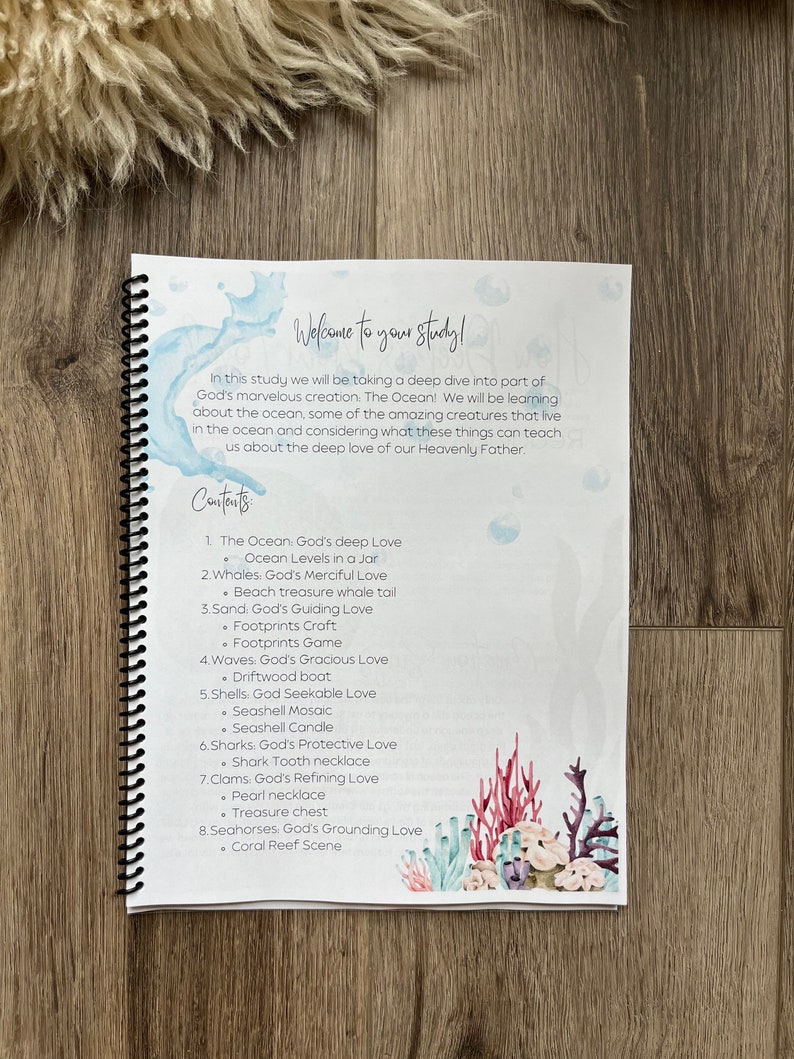 Welcome to your study!
In this study we will be taking a deep dive into part of
God's marvelous creation: The Ocean! We will be learning
about the ocean, some of the amazing creatures that live
in the ocean and considering what these things can teach
us about the deep love of our Heavenly Father.
Contents:
1. The Ocean: God's deep Love
Ocean Levels in a Jar
2. Whales: God's Merciful Love
Beach treasure whale tail
3. Sand: God's Guiding Love
Footprints Craft
Footprints Game
4. Waves: God's Gracious Love
Driftwood boat
5. Shells: God Seekable Love
Seashell Mosaic
Seashell Candle
6. Sharks: God's Protective Love
Shark Tooth necklace
7. Clams: God's Refining Love
Pearl necklace
Treasure chest
8. Seahorses: God's Grounding Love
Coral Reef Scene